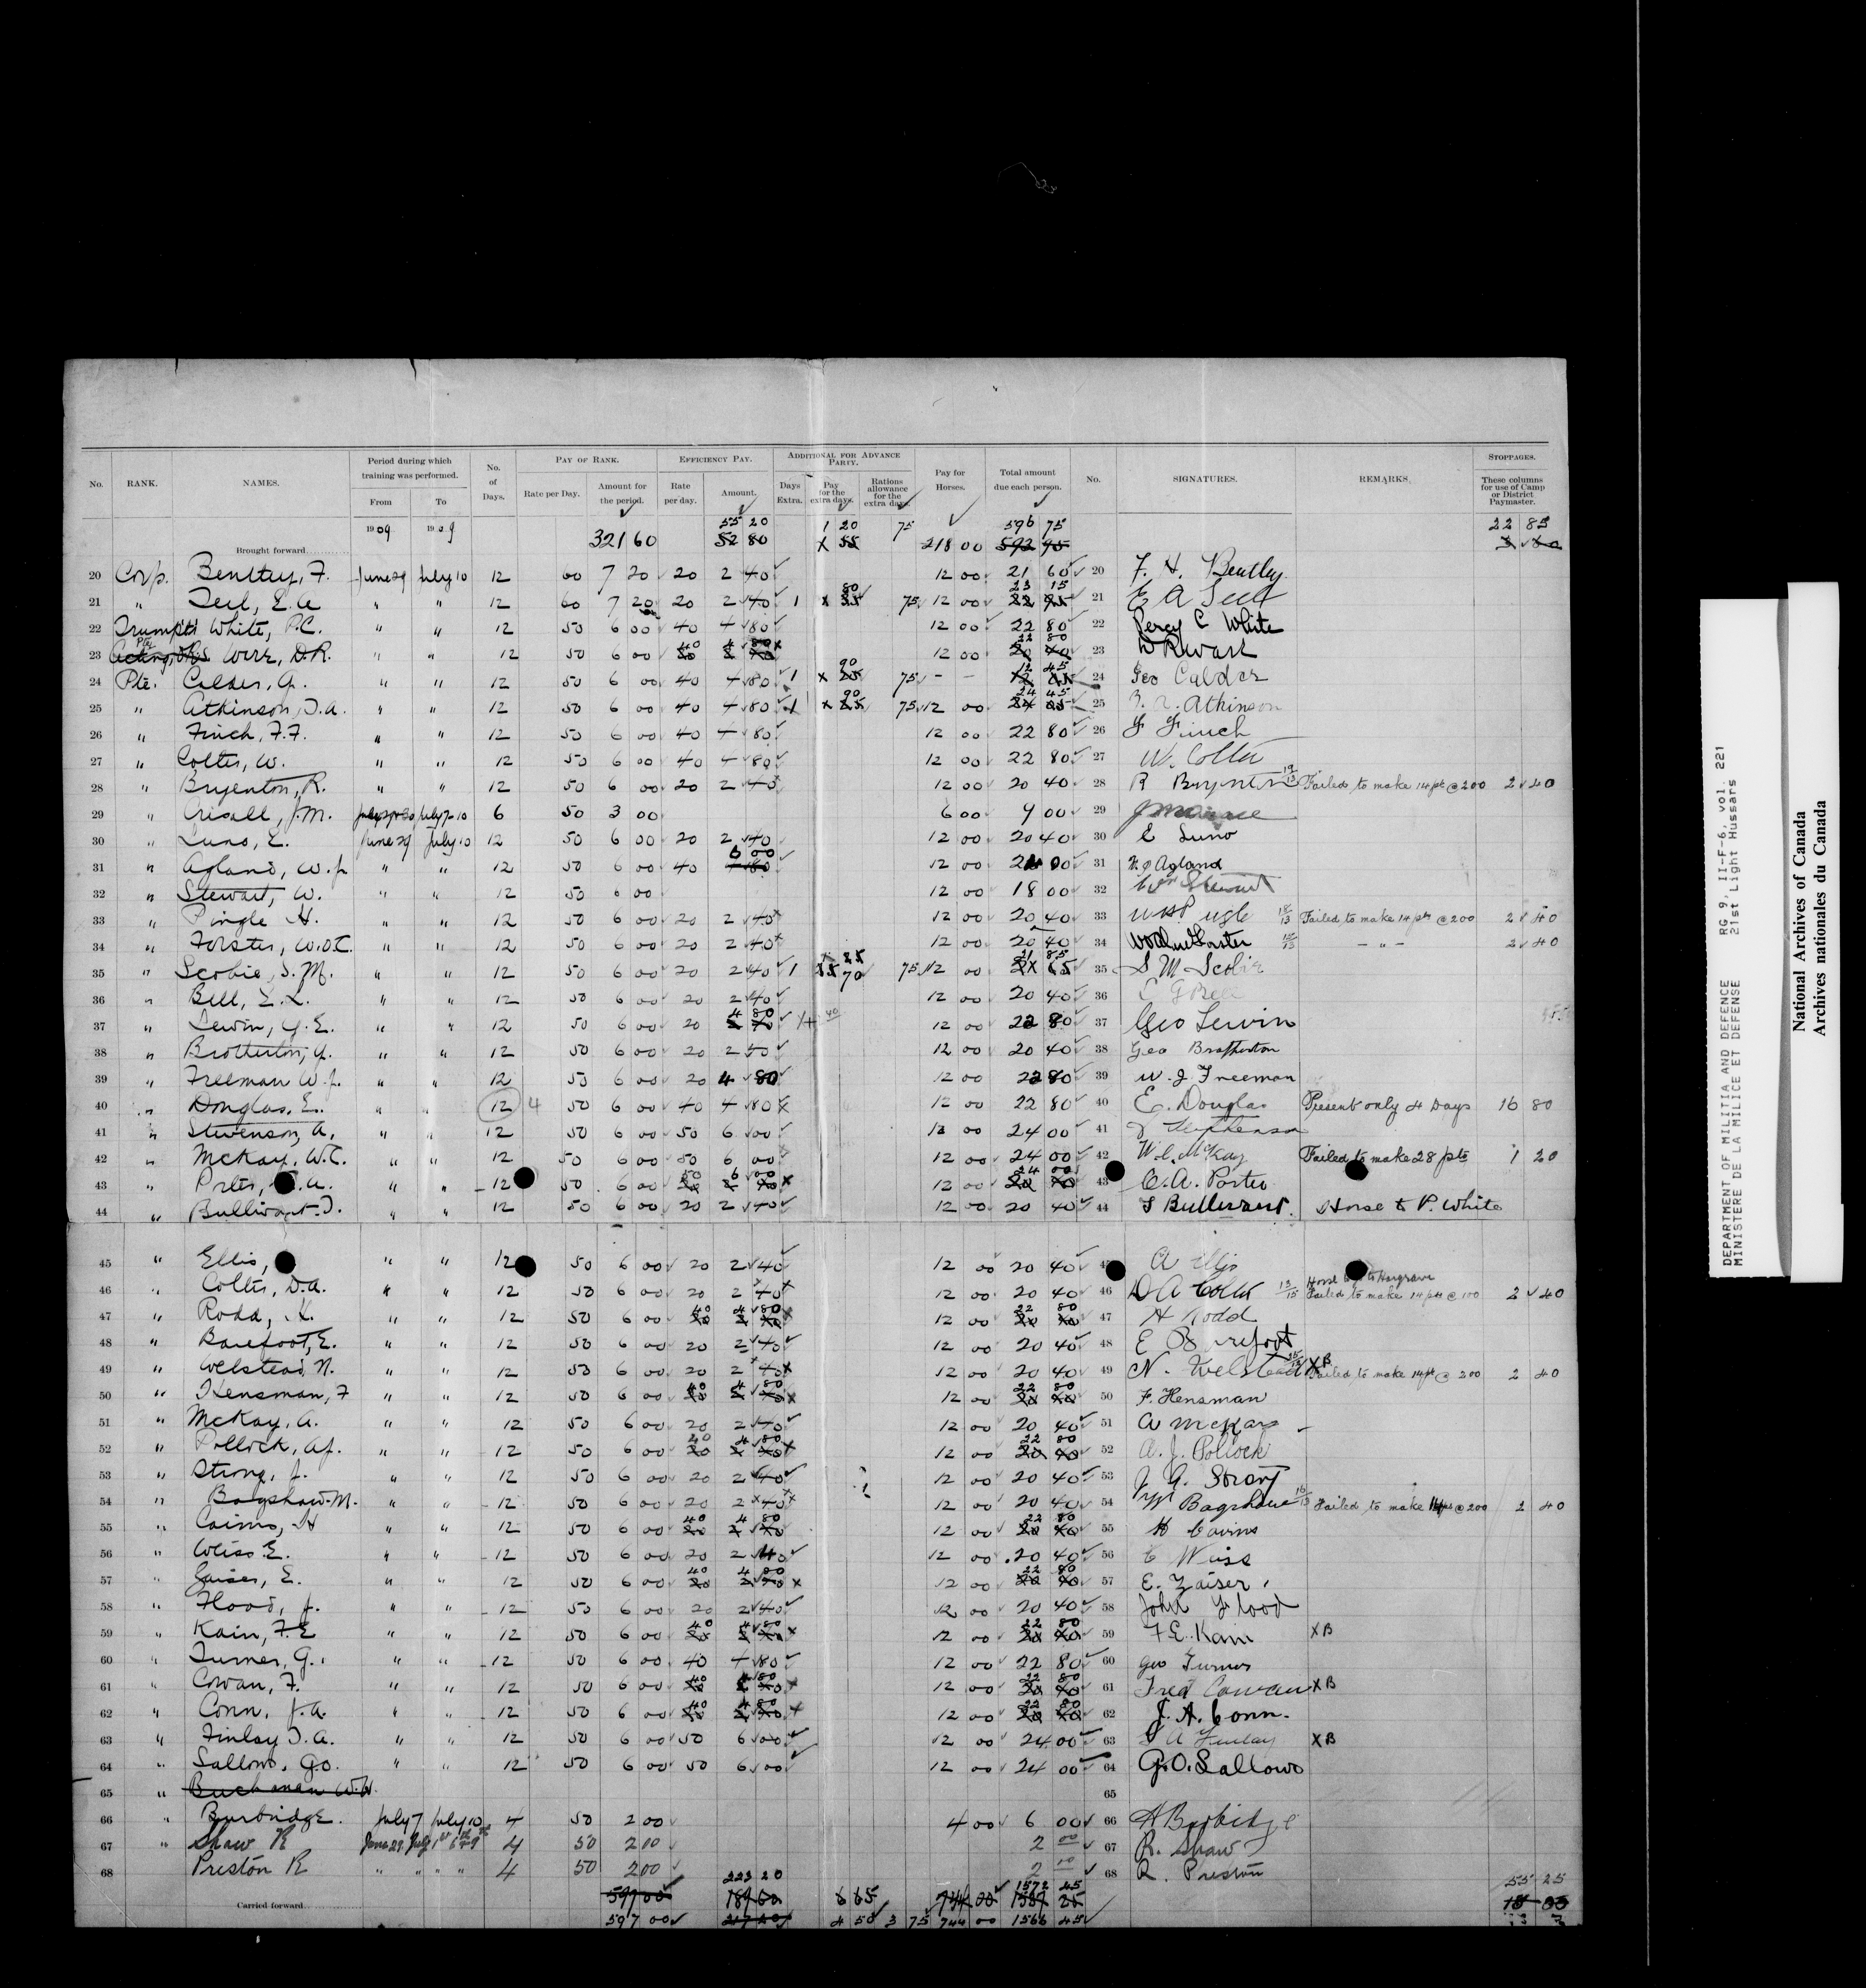 No. RANK. NAMES. Period during which training was performed. From To No. of Days. PAY OF RANK. Rate per Day. Amount for the period. EFFICIENCY PAY. Rate per day. Amount. ADDITIONAL FOR ADVANCE PARTY. Days Extra. Pay for the extra days. Rations allowance for the extra days. Pay for Horses. Total amount due each person. No. SIGNATURES. REMARKS. STOPPAGES. These columns for use of Camp or District Paymaster.
1909 1909 55 20 1 20 75 596 75 22 85
Brought forward 321 60 52 80 218 00 592 95
20 Corp. Bentley, F. June 29 July 10 12 60 7 20 20 2 40 12 00 21 60 20 F. H. Bentley
21 " Teel, E.A 12 60 7 20 20 2 40 1 80 75 12 00 23 15 21
22 Trumptr White, P.C. " " 12 50 6 00 40 4 80 12 00 22 80 22 Percy C White
23 D.R. " " 12 50 6 00 40 4 80 12 00 22 80 23
24 Pte. Calder, G. " " 12 50 6 00 40 4 80 1 90 75 - - 12 45 24 Geo Calder
25 " Atkinson, T.A. " " 12 50 6 00 40 4 80 1 90 75 12 00 24 45 25 Atkinson
26 " Finch, F.F. " " 12 50 6 00 40 4 80 12 00 22 80 26 F Finch
27 " Colter, W. " " 12 50 6 00 40 4 80 12 00 22 80 27 W. Colter
28 " Bryenton, R. " " 12 50 6 00 20 2 40 12 00 20 40 28 R Bryenton Failed to make 14 pts @ 200 2 40
29 " J.M. July 7-10 6 50 3 00 6 00 9 00 29
30 " Luno, E. June 29 July 10 12 50 6 00 20 2 40 12 00 20 40 30 E Luno
31 " Agland, W.J. " " 12 50 6 00 40 6 00 12 00 24 00 31 W J Agland
32 " Stewart, W. " " 12 50 6 00 12 00 18 00 32 Wm Stewart
33 " Pingle H. " " 12 50 6 00 20 2 40 12 00 20 40 33 Failed to make 14 pts @ 200 2 40
34 " Forster, W.O.C. " " 12 50 6 00 20 2 40 12 00 20 40 34 - " - 2 40
35 " Scobie, S.M. " " 12 50 6 00 20 2 40 1 70 75 12 00 21 85 35 S M Scobie
36 " Bell, E.L. " " 12 50 6 00 20 2 40 12 00 20 40 36
37 " Lewin, G.E. " " 12 50 6 00 20 4 80 12 00 22 80 37 Geo Lewin
38 " Brotherton, G. " " 12 50 6 00 20 12 00 20 40 38 Geo Brotherton
39 " Freeman W.J. " " 12 50 6 00 20 4 80 12 00 22 80 39 W. J. Freeman
40 " Douglas, E. " " 12 4 50 6 00 40 4 80 12 00 22 80 40 E. Douglas Present only 4 Days 16 80
41 " Stevenson, A. " " 12 50 6 00 50 6 00 12 00 24 00 41
42 " McKay, W.C. " " 12 50 6 00 50 6 00 12 00 24 00 42 W. C. McKay Failed to make 28 pts 1 20
43 " Porter, .A. " " 12 50 6 00 50 6 00 12 00 24 00 43 C. A. Porter
44 " Bullivant. T. " " 12 50 6 00 20 2 40 12 00 20 40 44 Horse to P. White
45 " Ellis, " " 12 50 6 00 20 2 40 12 00 20 40 A Ellis
46 " Colter, D.A. " " 12 50 6 00 20 2 40 12 00 20 40 46 D A Colter Failed to make 14 pts @ 100 2 40
47 " Rodd, H. " " 12 50 6 00 40 4 80 12 00 22 80 47 H Rodd
48 " Barefoot, E. " " 12 50 6 00 20 2 40 12 00 20 40 48 E Barefoot
49 " Welstead, N. " " 12 50 6 00 20 2 40 12 00 20 40 49 N. Welstead XB Failed to make 14 pts @ 200 2 40
50 " Hensman, F " " 12 50 6 00 40 4 80 12 00 22 80 50 F. Hensman
51 " McKay, A. " " 12 50 6 00 20 2 40 12 00 20 40 51 A McKay
52 " Pollock, A.J. " " 12 50 6 00 40 4 80 12 00 22 80 52 A. J. Pollock
53 " Strong, J. " " 12 50 6 00 20 2 40 12 00 20 40 53 J. G. Strong
54 " Bagshaw. M. " " 12 50 6 00 20 2 40 12 00 20 40 54 M Bagshaw Failed to make 14 pts @ 200 2 40
55 " Cairns, H " " 12 50 6 00 40 4 80 12 00 22 80 55 H Cairns
56 " Weiss E. " " 12 50 6 00 20 2 40 12 00 20 40 56 E Weiss
57 " Zaiser, E. " " 12 50 6 00 40 4 80 12 00 22 80 57 E. Zaiser
58 " Flood, J. " " 12 50 6 00 20 2 40 12 00 20 40 58 John Flood
59 " Kain, F.E " " 12 50 6 00 40 4 80 12 00 22 80 59 F. E. Kain XB
60 " Turner, G. " " 12 50 6 00 40 4 80 12 00 22 80 60 Geo Turner
61 " Cowan, F. " " 12 50 6 00 40 4 80 12 00 22 80 61 Fred Cowan XB
62 " Conn, J.A. " " 12 50 6 00 40 4 80 12 00 22 80 62 J. A. Conn.
63 " Finlay T.A. " " 12 50 6 00 50 6 00 12 00 24 00 63 T A Finlay XB
64 " Sallows, G.O. " " 12 50 6 00 50 6 00 12 00 24 00 64 G. O. Sallows
65 " Buchanan W.W. 65
66 " Burbridge. July 7 July 10 4 50 2 00 4 00 6 00 66 A Burbidge
67 " Shaw R June 29 July 4 50 2 00 2 00 67 R. Shaw
68 Preston R " " " " 4 50 2 00 2 00 68 R. Preston
223 20 1572 45 55 25
Carried forward 597 00 189 60 6 65 744 00 1587 25
597 00 217 20 4 50 3 75 744 00 1566 45
DEPARTMENT OF MILITIA AND DEFENCE RG 9, II-F-6, vol. 221
MINISTERE DE LA MILICE ET DEFENSE 21st Light Hussars
National Archives of Canada
Archives nationales du Canada